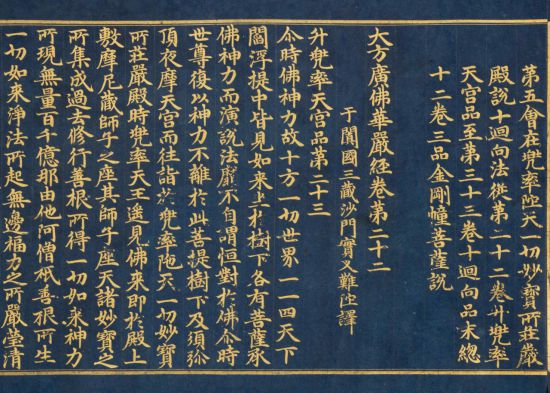 第五會在兜率陁天一切妙寶所莊嚴
殿說十迴向法從第二十二卷升兜率
天宮品至第三十三卷十迴向品末總
十二卷三品金剛幢菩薩說
大方廣佛華嚴経卷第二十二
于闐國三藏沙門實叉難陁譯
升兜率天宮品第二十三
尒時佛神力故十方一切世界一一四天下
閻浮提中皆見如來上於樹下各有菩薩承
佛神力而演說法靡不自謂恒對於佛尒時
世尊復以神力不離於此菩提樹下及須弥
頂夜摩天宮而往詣於兜率陁天一切妙寶
所莊嚴殿時兜率天王遥見佛來即於殿上
敷摩尼藏師子之座其師子座天諸妙寶之
所集成過去修行善根所得一切如來神力
所現無量百千億那由他阿僧秖善根所生
一切如來淨法所起無邊福力之所嚴瑩清